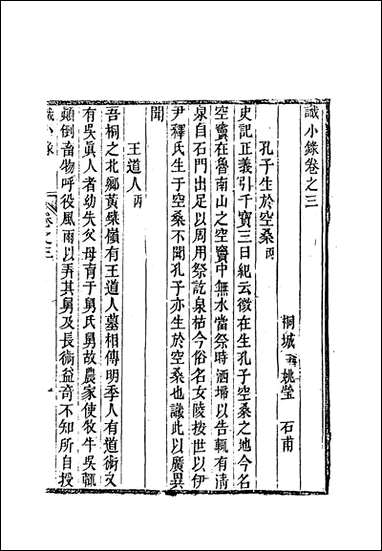 識小錄卷之三
桐城 姚瑩 石甫
孔子生於空桑丙
史記正義引干寶三日紀云徵在生孔子空桑之地今名
空竇在魯南山之空竇中無水當祭時洒埽以告輒有清
泉自石門出足以周用祭訖泉枯今俗名女陵按世以伊
尹釋氏生于空桑不聞孔子亦生於空桑也識此以廣異
聞
王道人丙
吾桐之北鄉黃檗嶺有王道人墓相傳明季人有道術又
有吳眞人者幼失父母育于舅氏舅故農家使牧牛吳輒
顛倒畜物呼役風雨以弄其舅及長術益奇不知所自授
識小錄
卷之三
一